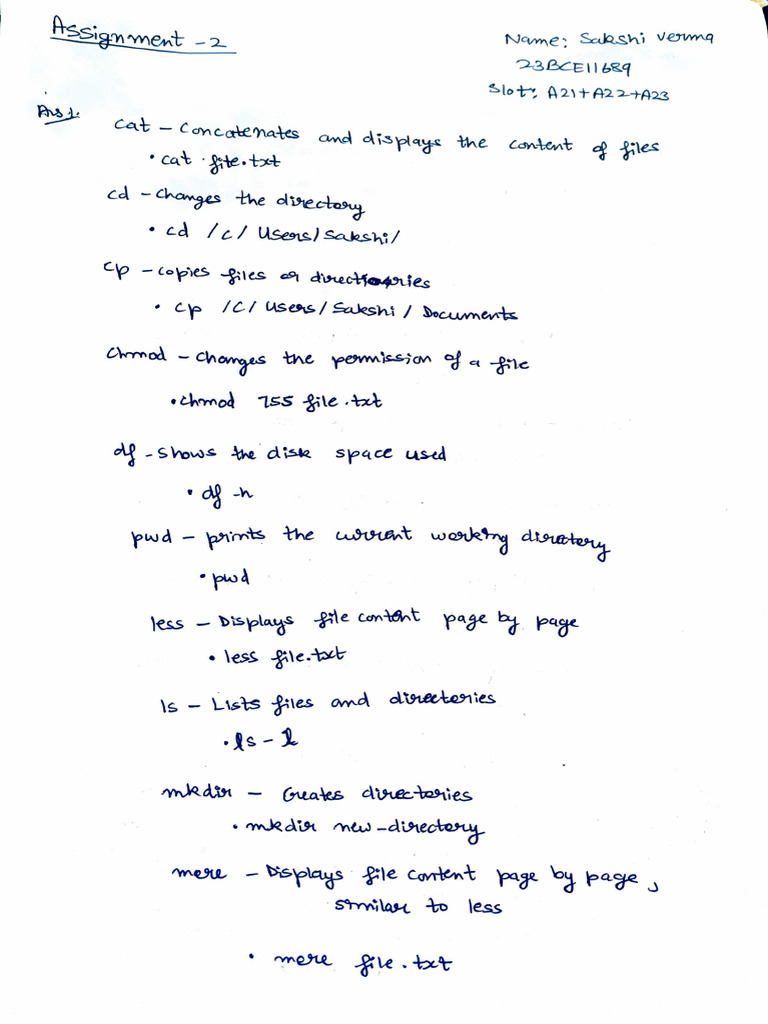 Assignment - 2
Name: Sakshi Verma
23BCE11689
Slot: A21+A22+A23
Ans 1.
cat - Concatenates and displays the content of files
• cat file.txt
cd - changes the directory
• cd /c/ Users/Sakshi/
cp - copies files or directories
• cp /C/ Users/Sakshi/ Documents
Chmod - Changes the permission of a file
• chmod 755 file.txt
df - shows the disk space used
• df -h
pwd - prints the current working directory
• pwd
less - Displays file content page by page
• less file.txt
ls - Lists files and directories
• ls - l
mkdir - Creates directories
• mkdir new-directory
more - Displays file content page by page,
similar to less
• more file.txt